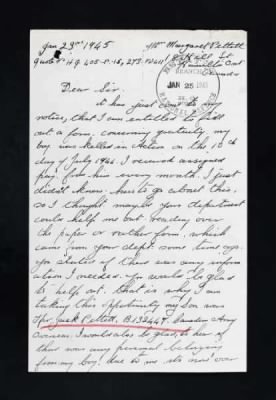 Jan 23rd 1945
Mrs Margaret Pettett
Quote # H.Q. 405-P-15,
Hamilton Ont
Canada
JAN 25
Dear Sir.
It has just come to my
notice, that I am entitled to fill
out a form, concerning gratuity my
boy was killed in Action on the 10th
day of July 1944 I received assigned
pay from him every month. I just
didn't know how to go about this,
so I thought maybe your department
could help me but reading over
the paper or rather form, which
came from your dept some time ago
you stated if there was any inform
ation I needed. You would be glad
to help out. that is why I am
taking this opportunity my Son was
Tpr. Jack Pettett, B132447. Canadian Army
Overseas. I would also be glad, to hear if
there was any personal belongings
from my boy. due to me its now over